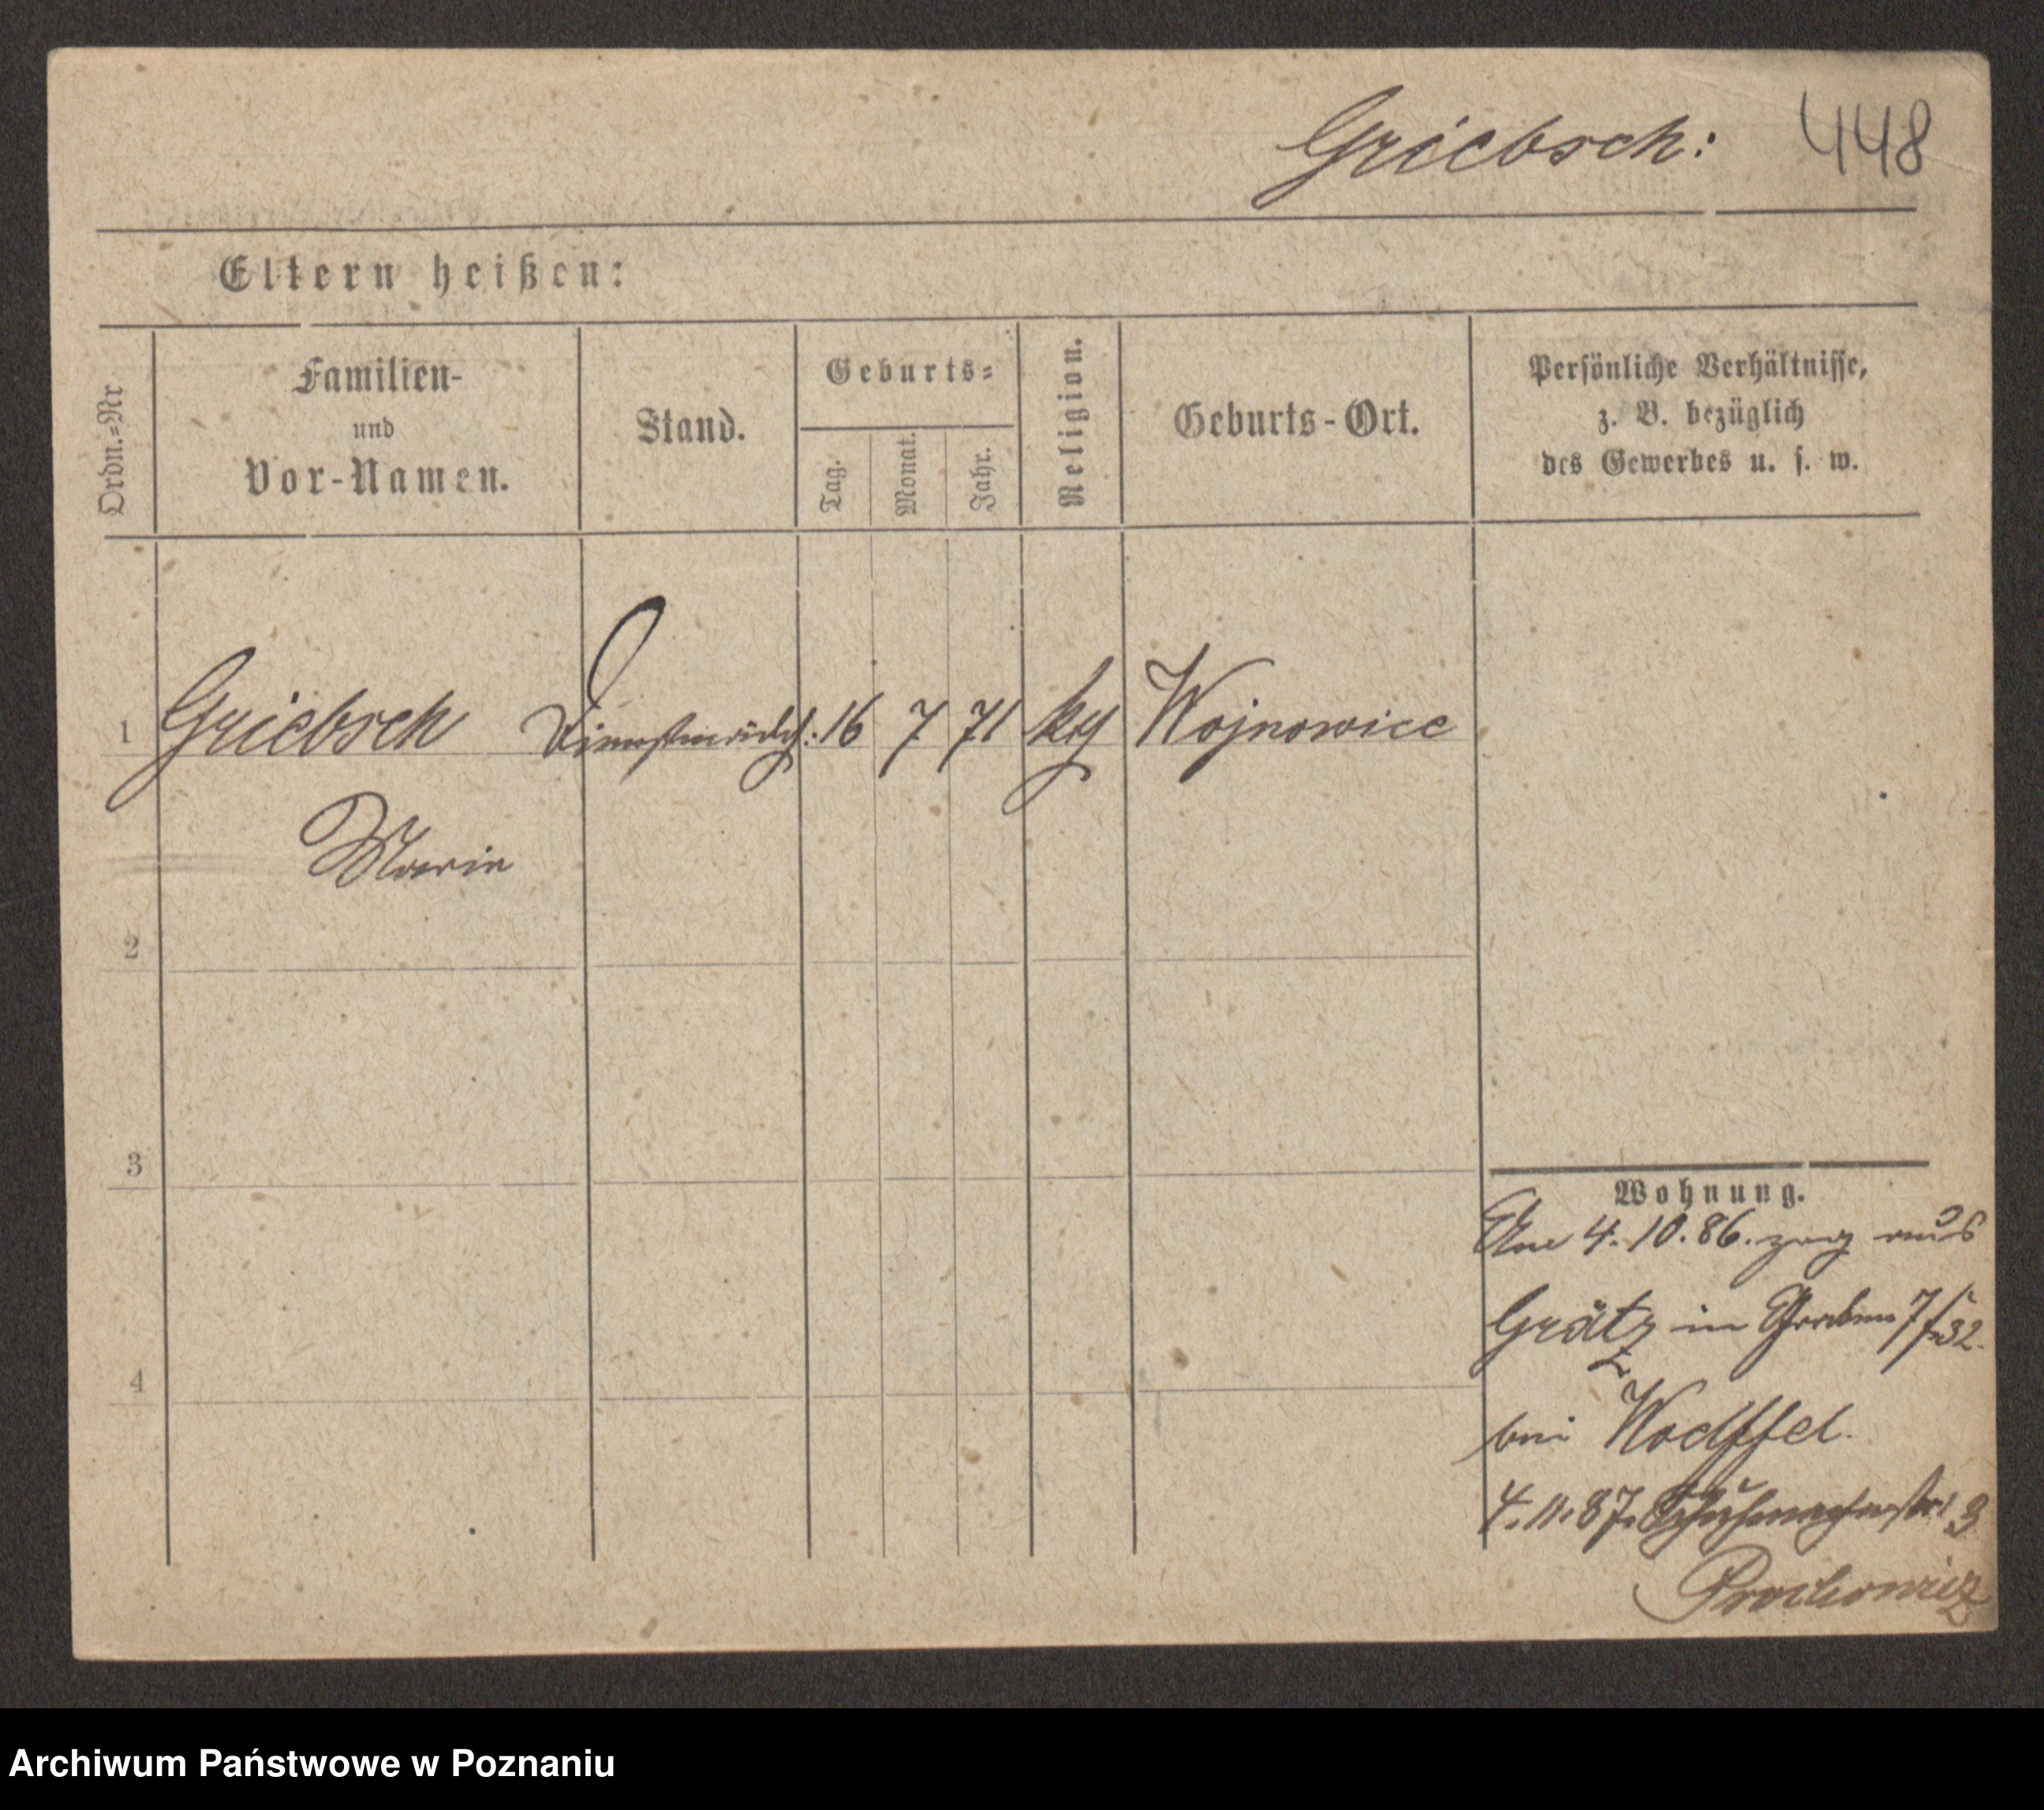 Griebsch: 448
Eltern heißen:
Ordn.=Nr
Familien-
und
Vor-Namen.
Stand.
Geburts=
Tag.
Monat.
Jahr.
Religion.
Geburts-Ort.
Persönliche Verhältnisse,
z. B. bezüglich
des Gewerbes u. s. w.
1 Griebsch Dienstmädch: 16 7 71 Wojnowice
Marie
2
3
4
Wohnung.
Am 4.10.86. zog aus
Grätz in Graben 7
bei
4.11.87. Schuhmacherstr. 3
Archiwum Państwowe w Poznaniu